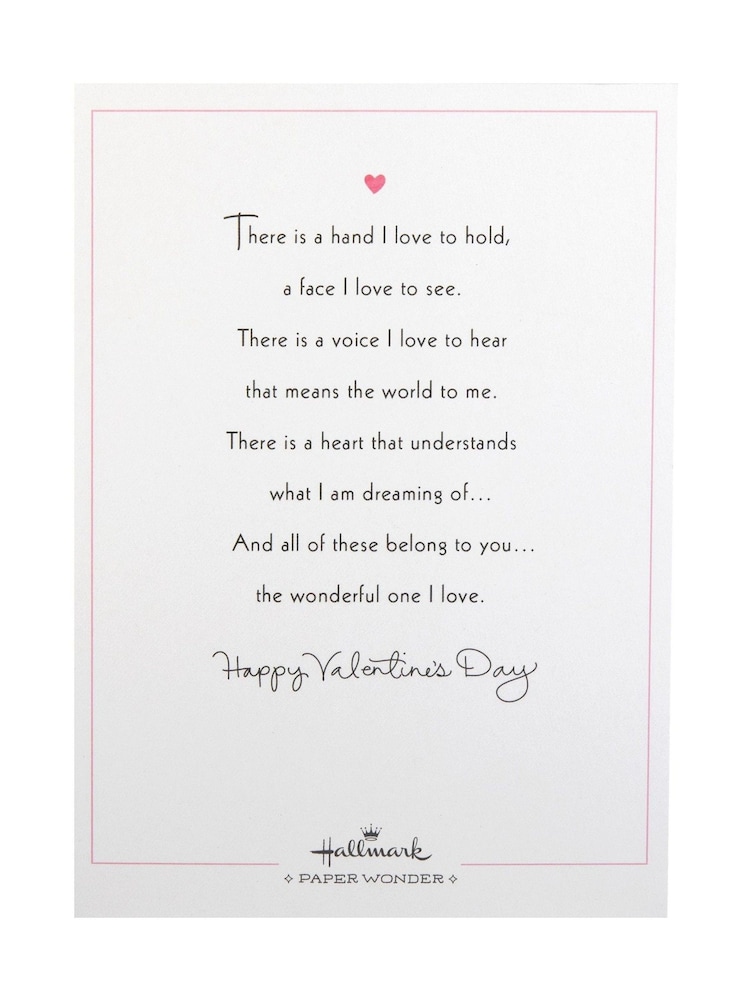 There is a hand I love to hold,
a face I love to see.
There is a voice I love to hear
that means the world to me.
There is a heart that understands
what I am dreaming of...
And all of these belong to you...
the wonderful one I love.
Happy Valentine's Day
Hallmark
PAPER WONDER